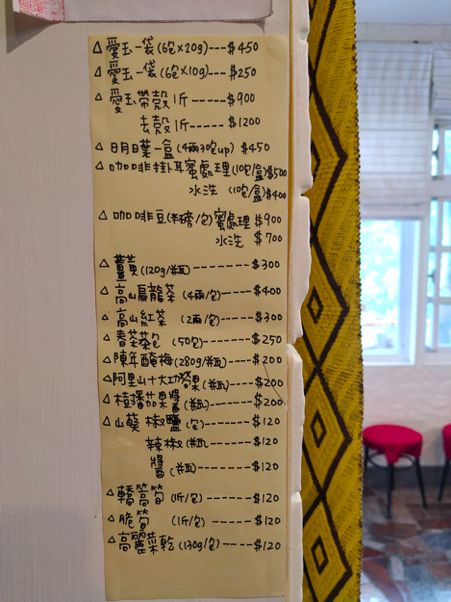 △ 愛玉一袋(6包×20g)---$450
△ 愛玉一袋(6包×10g)---$250
△ 愛玉帶殼1斤-----$900
去殼1斤----$1200
△ 明日葉一盒(4兩30包up) $450
△ 咖啡掛耳蜜處理(10包/盒)$500
水洗 (10包/盒)$400
△ 咖啡豆(半磅/包)蜜處理 $900
水洗 $700
△ 薑黃(120g/瓶)--------$300
△ 高山烏龍茶 (4兩/包)----$400
△ 高山紅茶 (2兩/包)----$300
△ 春茶茶包 (50包)------$250
△ 陳年醃梅(280g/瓶)---$200
△阿里山十大功勞果(瓶)---$200
△ 樹番茄果醬(瓶)------$200
△ 山葵 椒鹽(包)-----$120
辣椒(瓶-----$120
醬(瓶)------$120
△ 轎篙筍(1斤/包)-----$120
△ 脆筍 (1斤/包)------$120
△ 高麗菜乾(130g/包)----$120